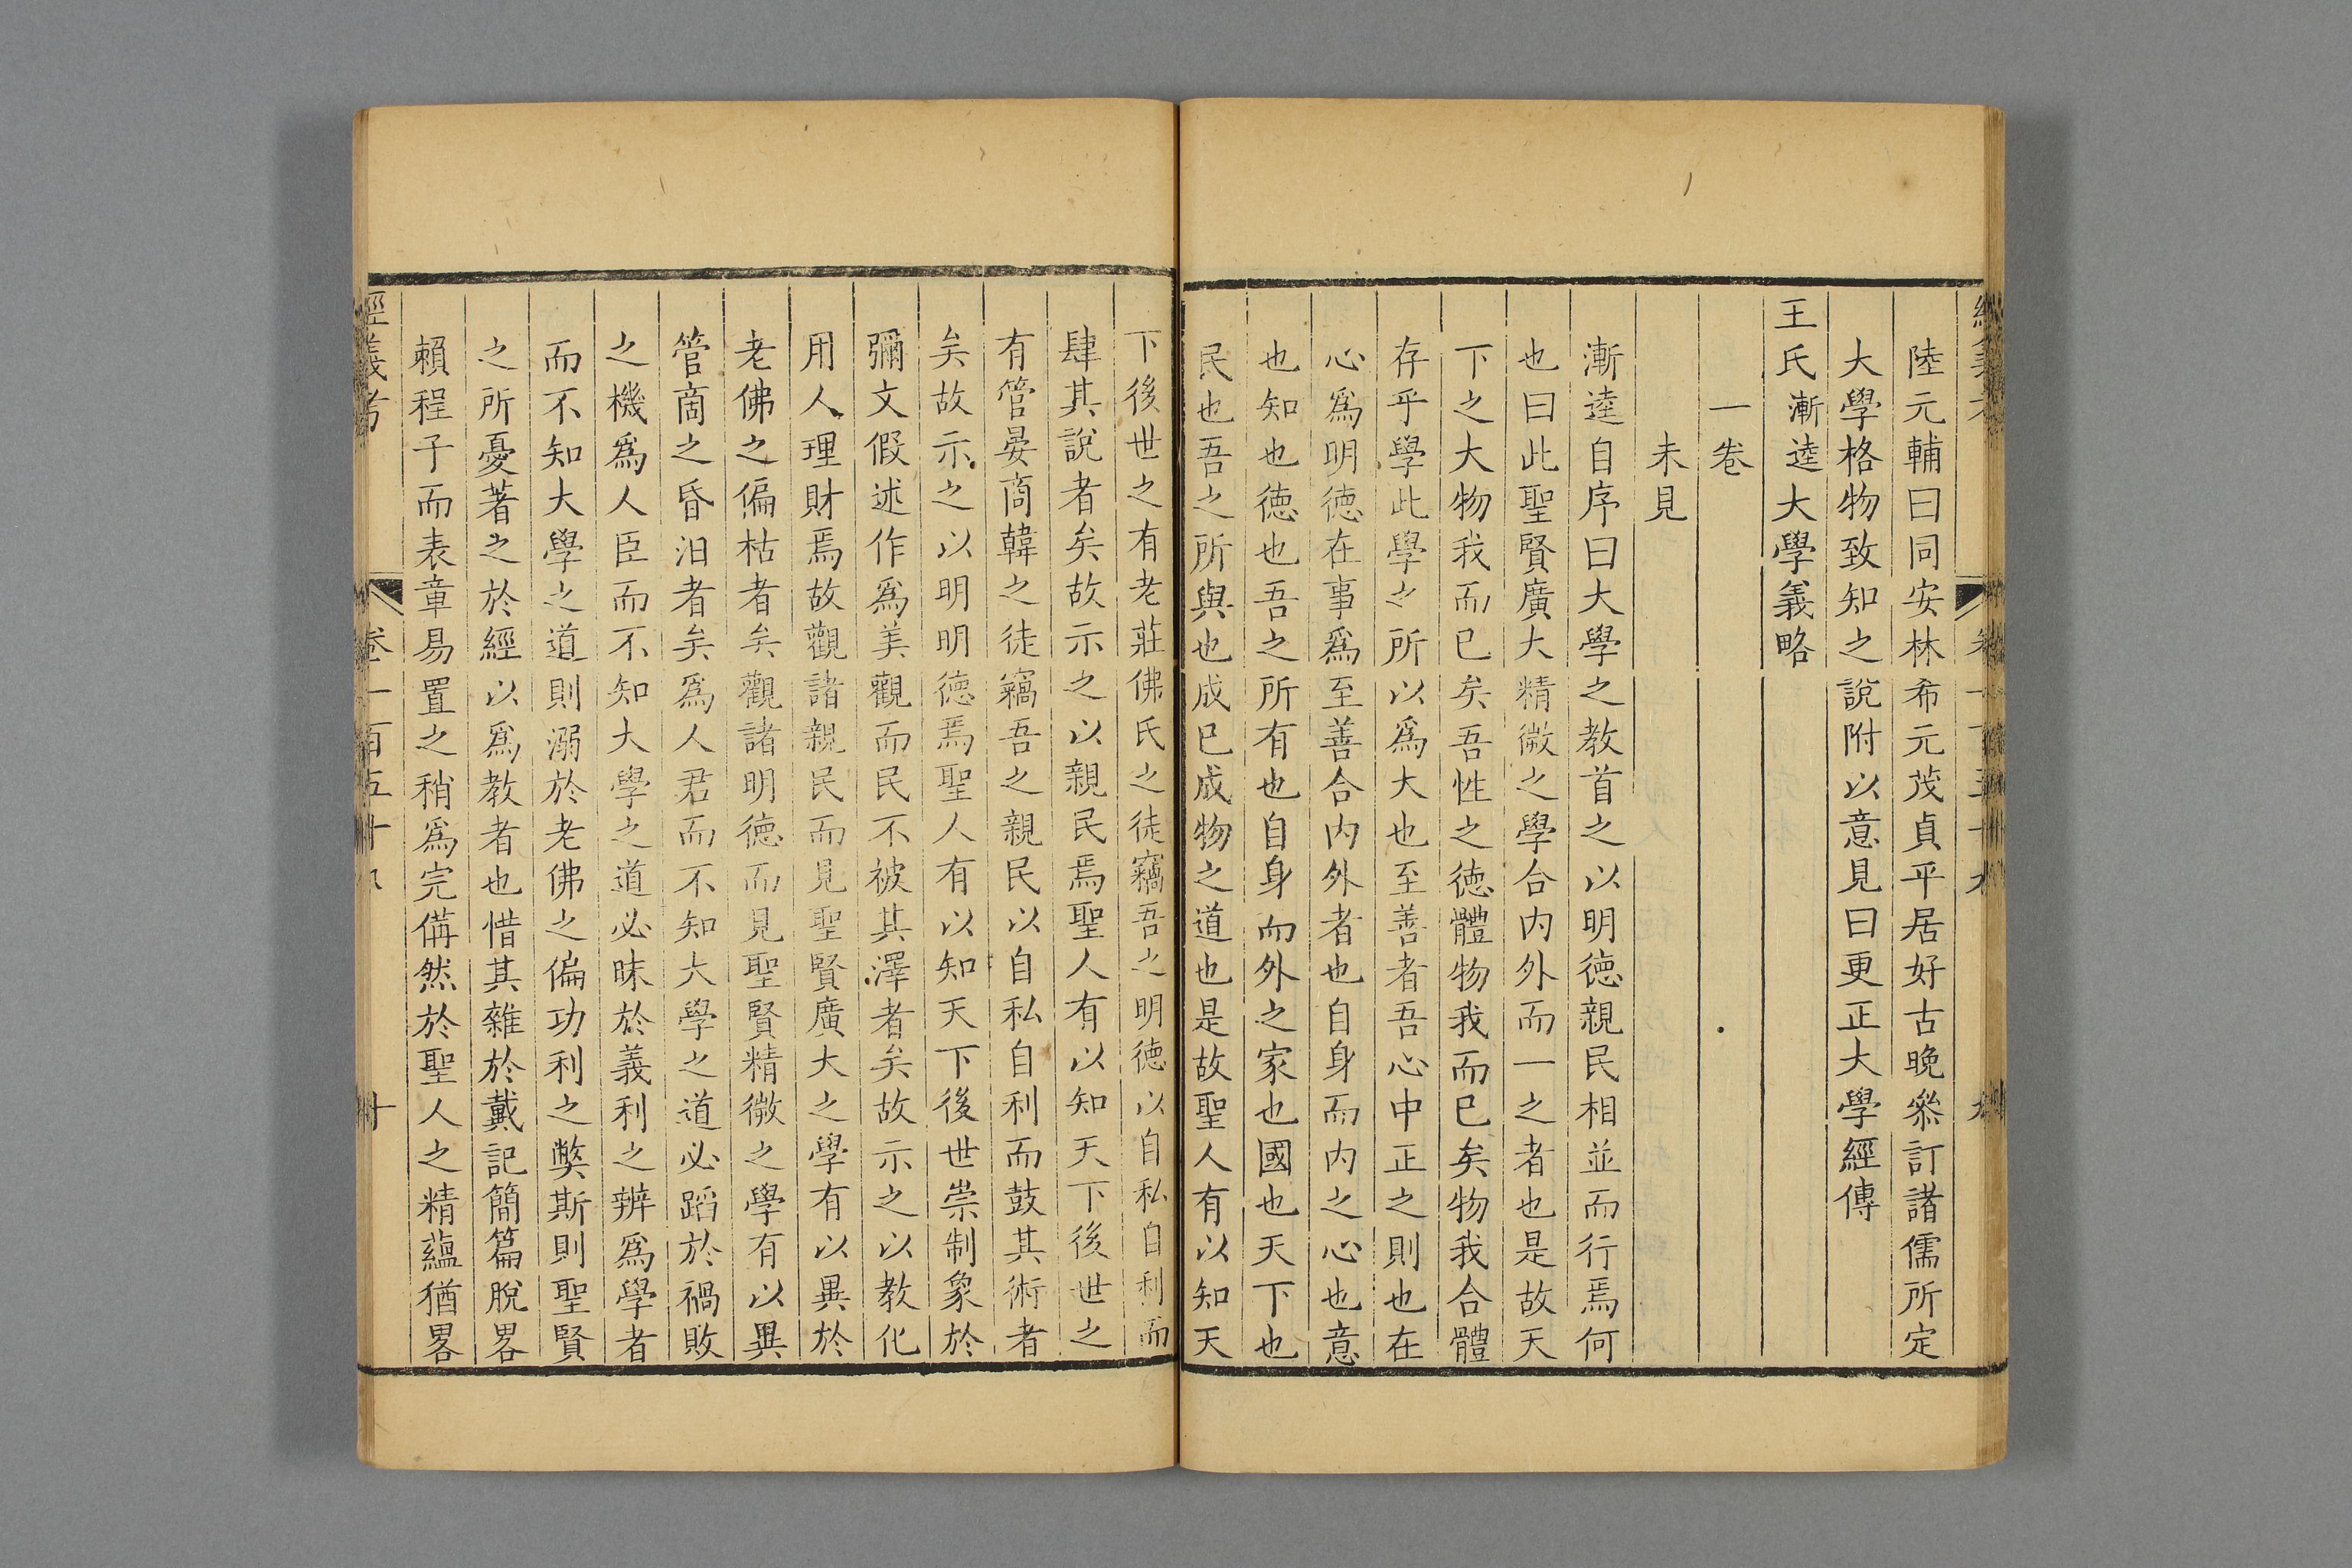 陸元輔曰同安林希元茂貞平居好古晚叅訂諸儒所定
大學格物致知之說附以意見曰更正大學經傳
王氏漸逵大學義略
一卷
未見
漸逵自序曰大學之教首之以明德親民相並而行焉何
也曰此聖賢廣大精微之學合內外而一之者也是故天
下之大物我而已矣吾性之德體物我而已矣物我合體
存乎學此學之所以為大也至善者吾心中正之則也在
心爲明德在事爲至善合內外者也自身而內之心也意
也知也德也吾之所有也自身而外之家也國也天下也
民也吾之所與也成已成物之道也是故聖人有以知天
下後世之有老莊佛氏之徒竊吾之明德以自私自利而
肆其說者矣故示之以親民焉聖人有以知天下後世之
有管晏商韓之徒竊吾之親民以自私自利而鼓其術者
矣故示之以明明德焉聖人有以知天下後世崇制象於
彌文假述作爲美觀而民不被其澤者矣故示之以教化
用人理財焉故觀諸親民而見聖賢廣大之學有以異於
老佛之偏枯者矣觀諸明德而見聖賢精微之學有以異
管商之昏汨者矣爲人君而不知大學之道必蹈於禍敗
之機爲人臣而不知大學之道必昧於義利之辨爲學者
而不知大學之道則溺於老佛之偏功利之弊斯則聖賢
之所憂著之於經以爲教者也惜其雜於戴記簡篇脫畧
賴程子而表章易置之稍爲完備然於聖人之精蘊猶畧
經義考 卷一百五十九 十